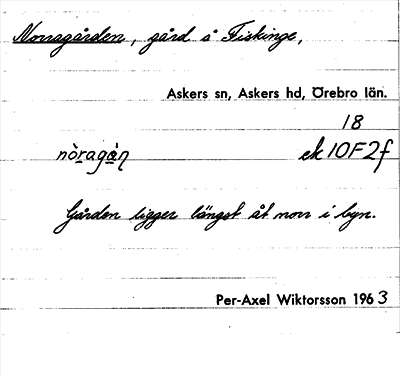 Norragården, gård å Fiskinge,
Askers sn, Askers hd, Örebro län.
18
nòragån̥ ek 10F2f
Gården ligger längst åt norr i byn.
Per-Axel Wiktorsson 1963